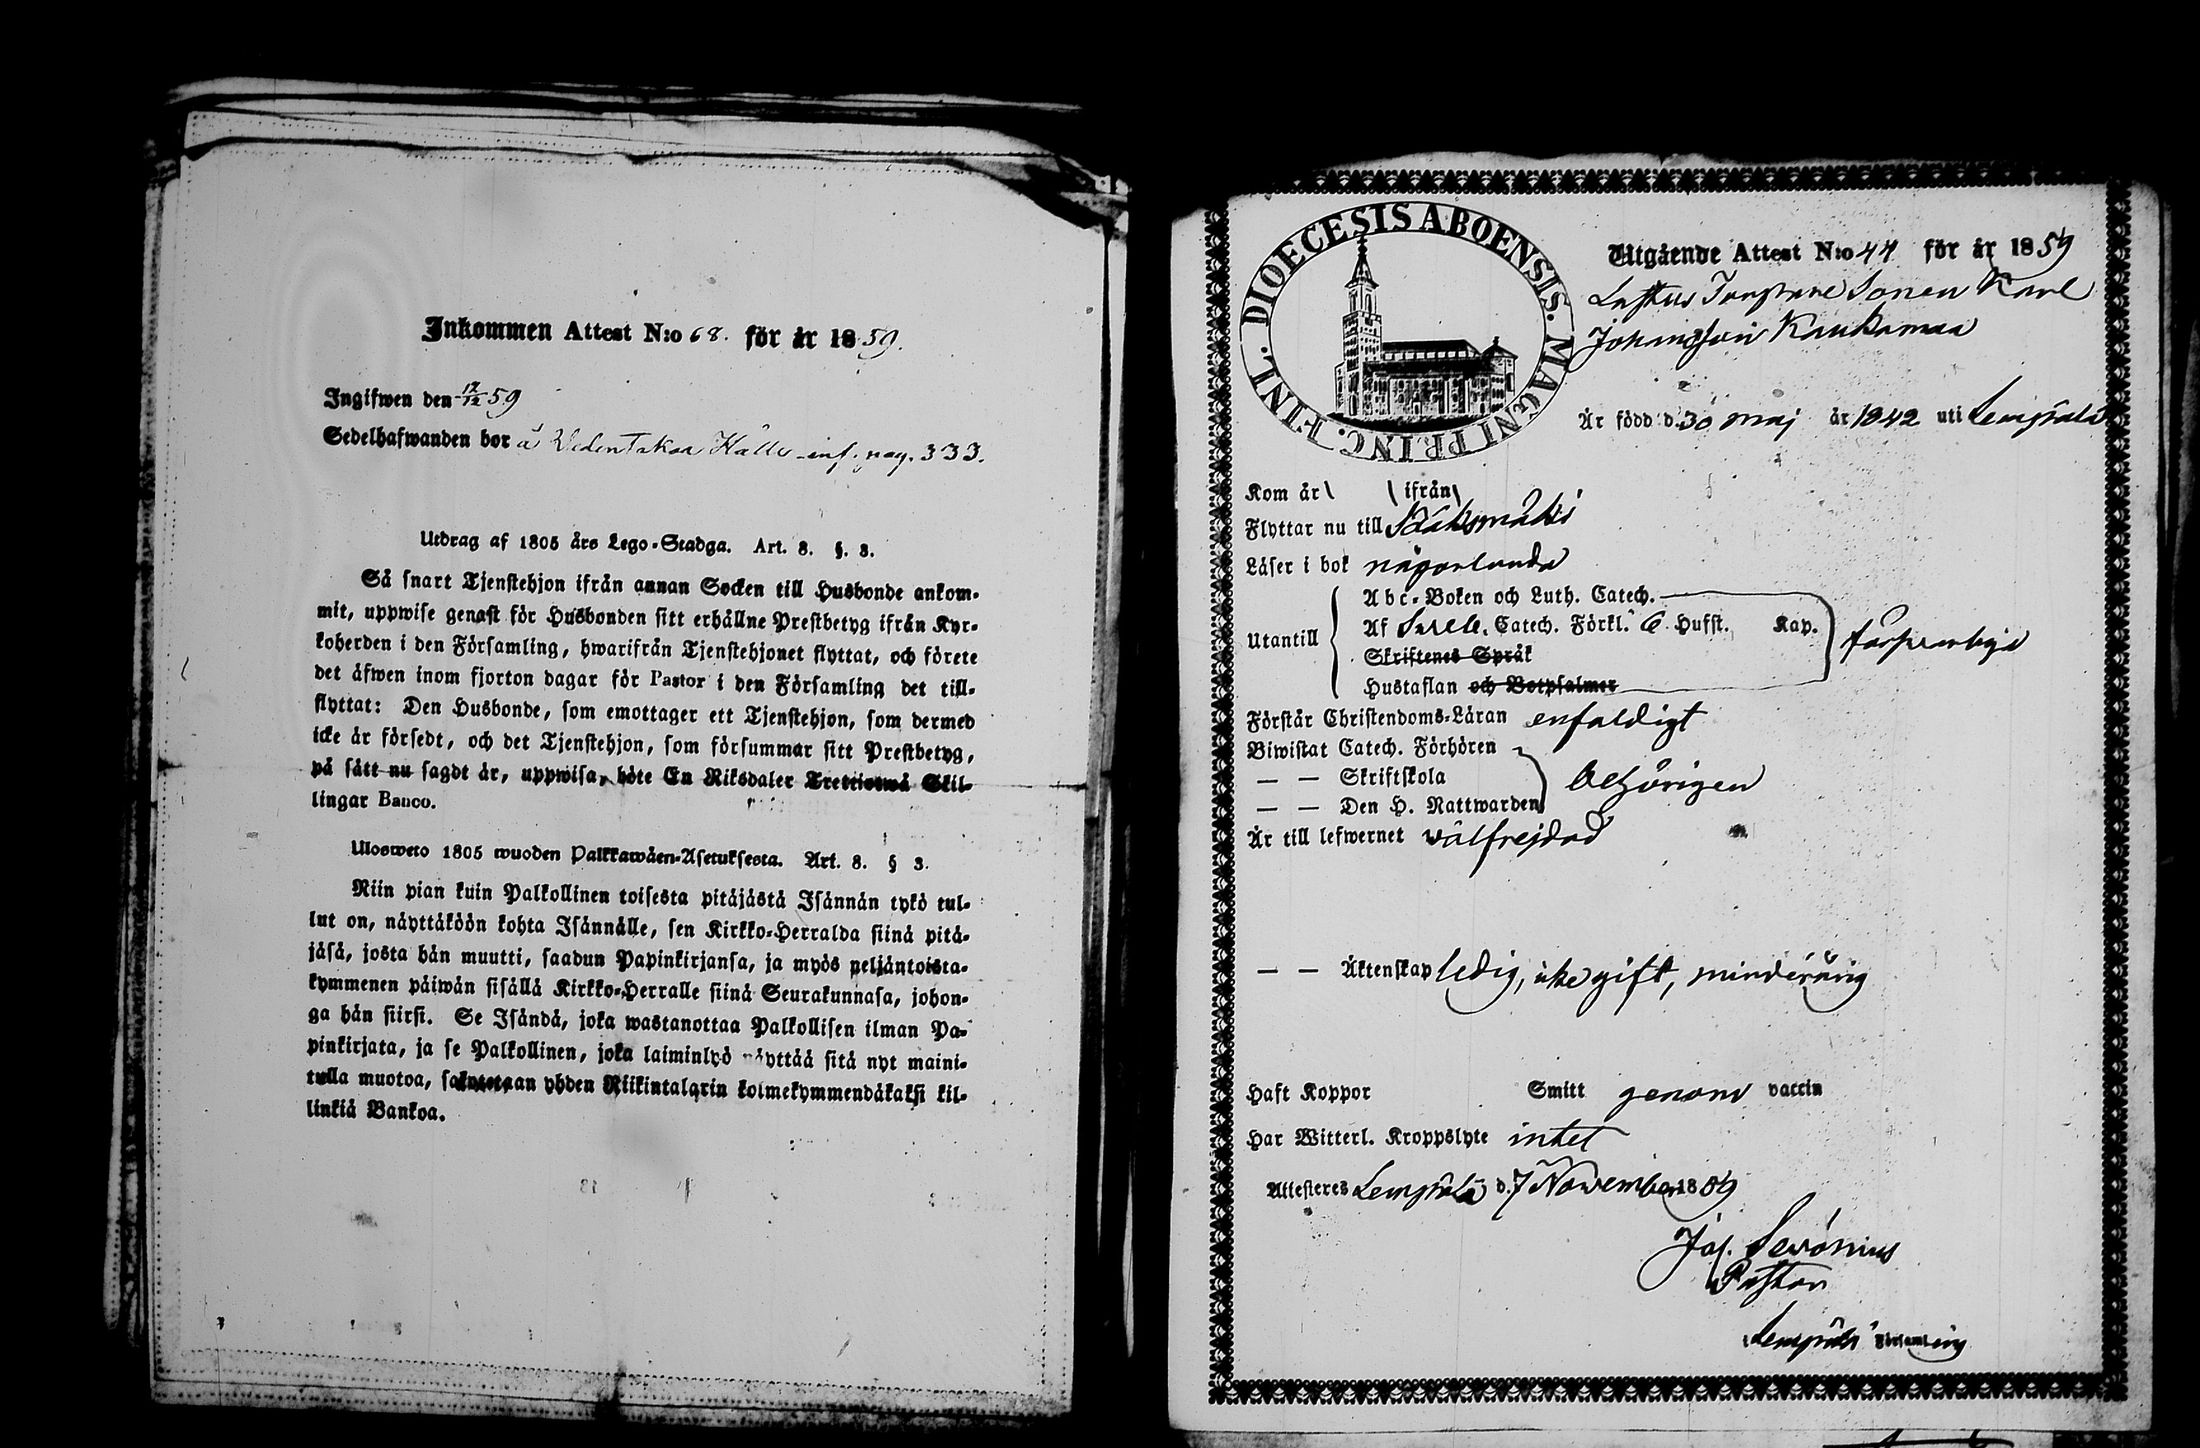 Inkommen Attest N:o 68. för år 1859.
Ingifwen den 17/12 59
Sedelhafwanden bor å Vedentakaa Källe inf. pag. 333.
Utdrag af 1805 års Lego-Stadga. Art. 8. §. 3.
Så snart Tjenstehjon ifrån annan Socken till Husbonde ankom-
mit, uppwise genast för Husbonden sitt erhållne Prestbetyg ifrån Kyr-
koherden i den Församling, hwarifrån Tjenstehjonet flyttat, och förete
det äfwen inom fjorton dagar för Pastor i den Församling det till-
flyttat: Den Husbonde, som emottager ett Tjenstehjon, som dermed
icke är försedt, och det Tjenstehjon, som försummar sitt Prestbetyg,
på sätt nu sagdt är, uppwisa, böte En Riksdaler Trettiotwå Skil-
lingar Banco.
Ulosweto 1805 wuoden Palkkawäen-Asetuksesta. Art. 8. § 3.
Niin pian kuin Palkollinen toisesta pitäjästä Isännän tykö tul-
lut on, näyttäköön kohta Isännälle, sen Kirkko-Herralda siinä pitä-
jäsä, josta hän muutti, saadun Papinkirjansa, ja myös neljäntoista-
kymmenen päiwän sisällä Kirkko-Herralle siinä Seurakunnasa, johon-
ga hän siirsi. Se Isändä, joka wastanottaa Palkollisen ilman Pa-
pinkirjata, ja se Palkollinen, joka laiminlyö näyttää sitä nyt maini-
tulla muotoa, sakotetaan yhden Riikintalarin kolmekymmendäkaksi kil-
linkiä Bankoa.
DIOECESIS ABOENSIS. MAGNI PRINC. FINL.
Utgående Attest N:o 44 för år 1859
Sonen Karl
Johansson Kaukamaa
Är född d. 30 maj år 1842 uti Lempälä
Kom år ifrån
Flyttar nu till Sääksmäki
Läser i bok någorlunda
Utantill
Abc-Boken och Luth. Catech.
Af Sweb. Catech. Förkl. 6 Hufst. Kap.
Skriftenes Språk
Hustaflan och Botpsalmer
försvarligt
Förstår Christendoms-Läran enfaldigt
Biwistat Catech. Förhören
— — Skriftskola
— — Den H. Nattwarden
behörigen
Är till lefwernet välfrejdad
— — Äktenskap ledig, icke gift, minderårig
Haft Koppor Smitt genom vaccin
Har Witterl. Kroppslyte intet
Attesteres Lempälä d. 7 November 1859
Jos. Servonius
Pastor
Lempälä Församling